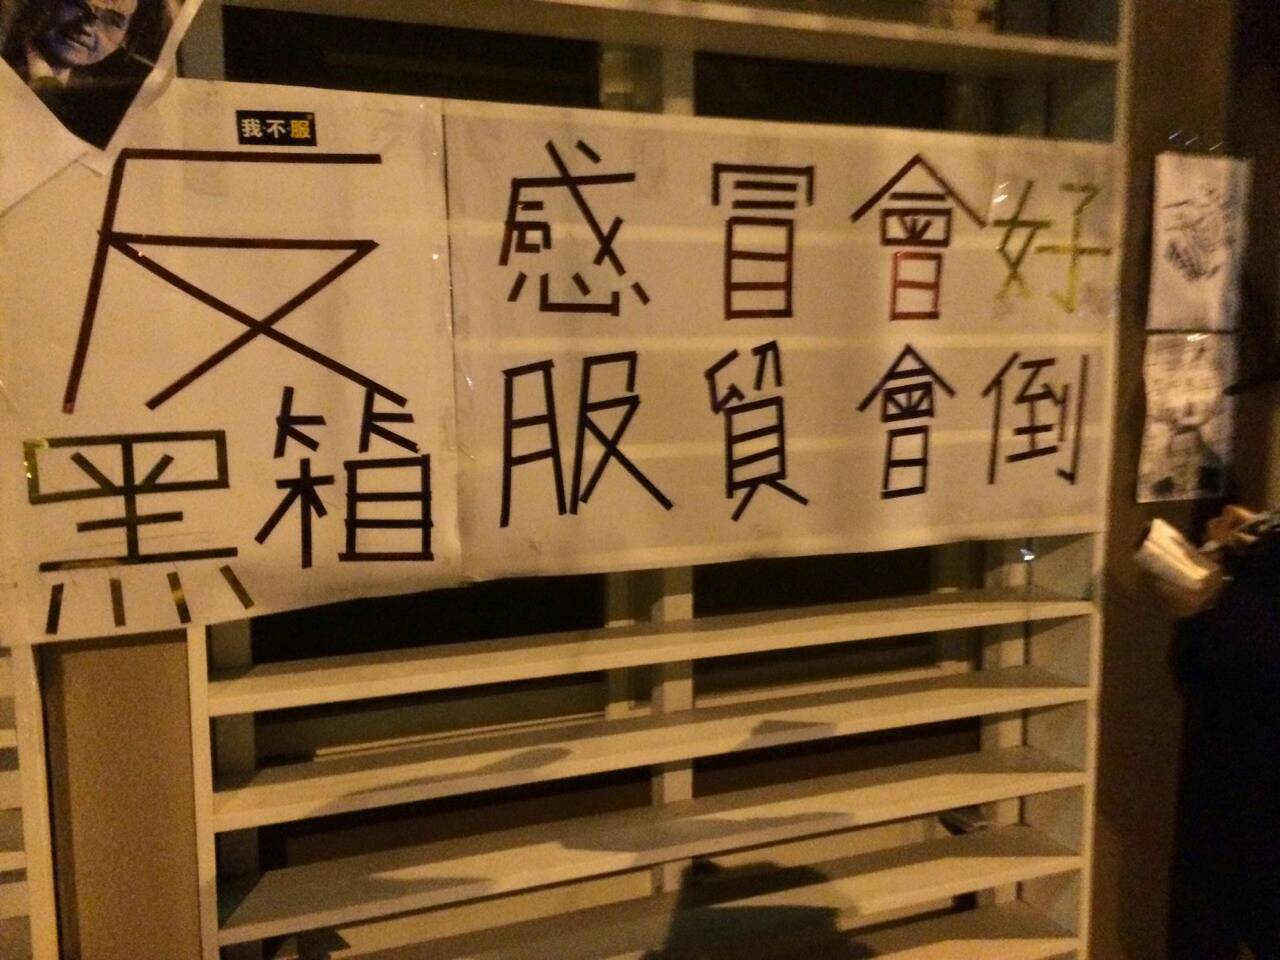 我·不·服
反
黑箱
感冒會好
服貿會倒